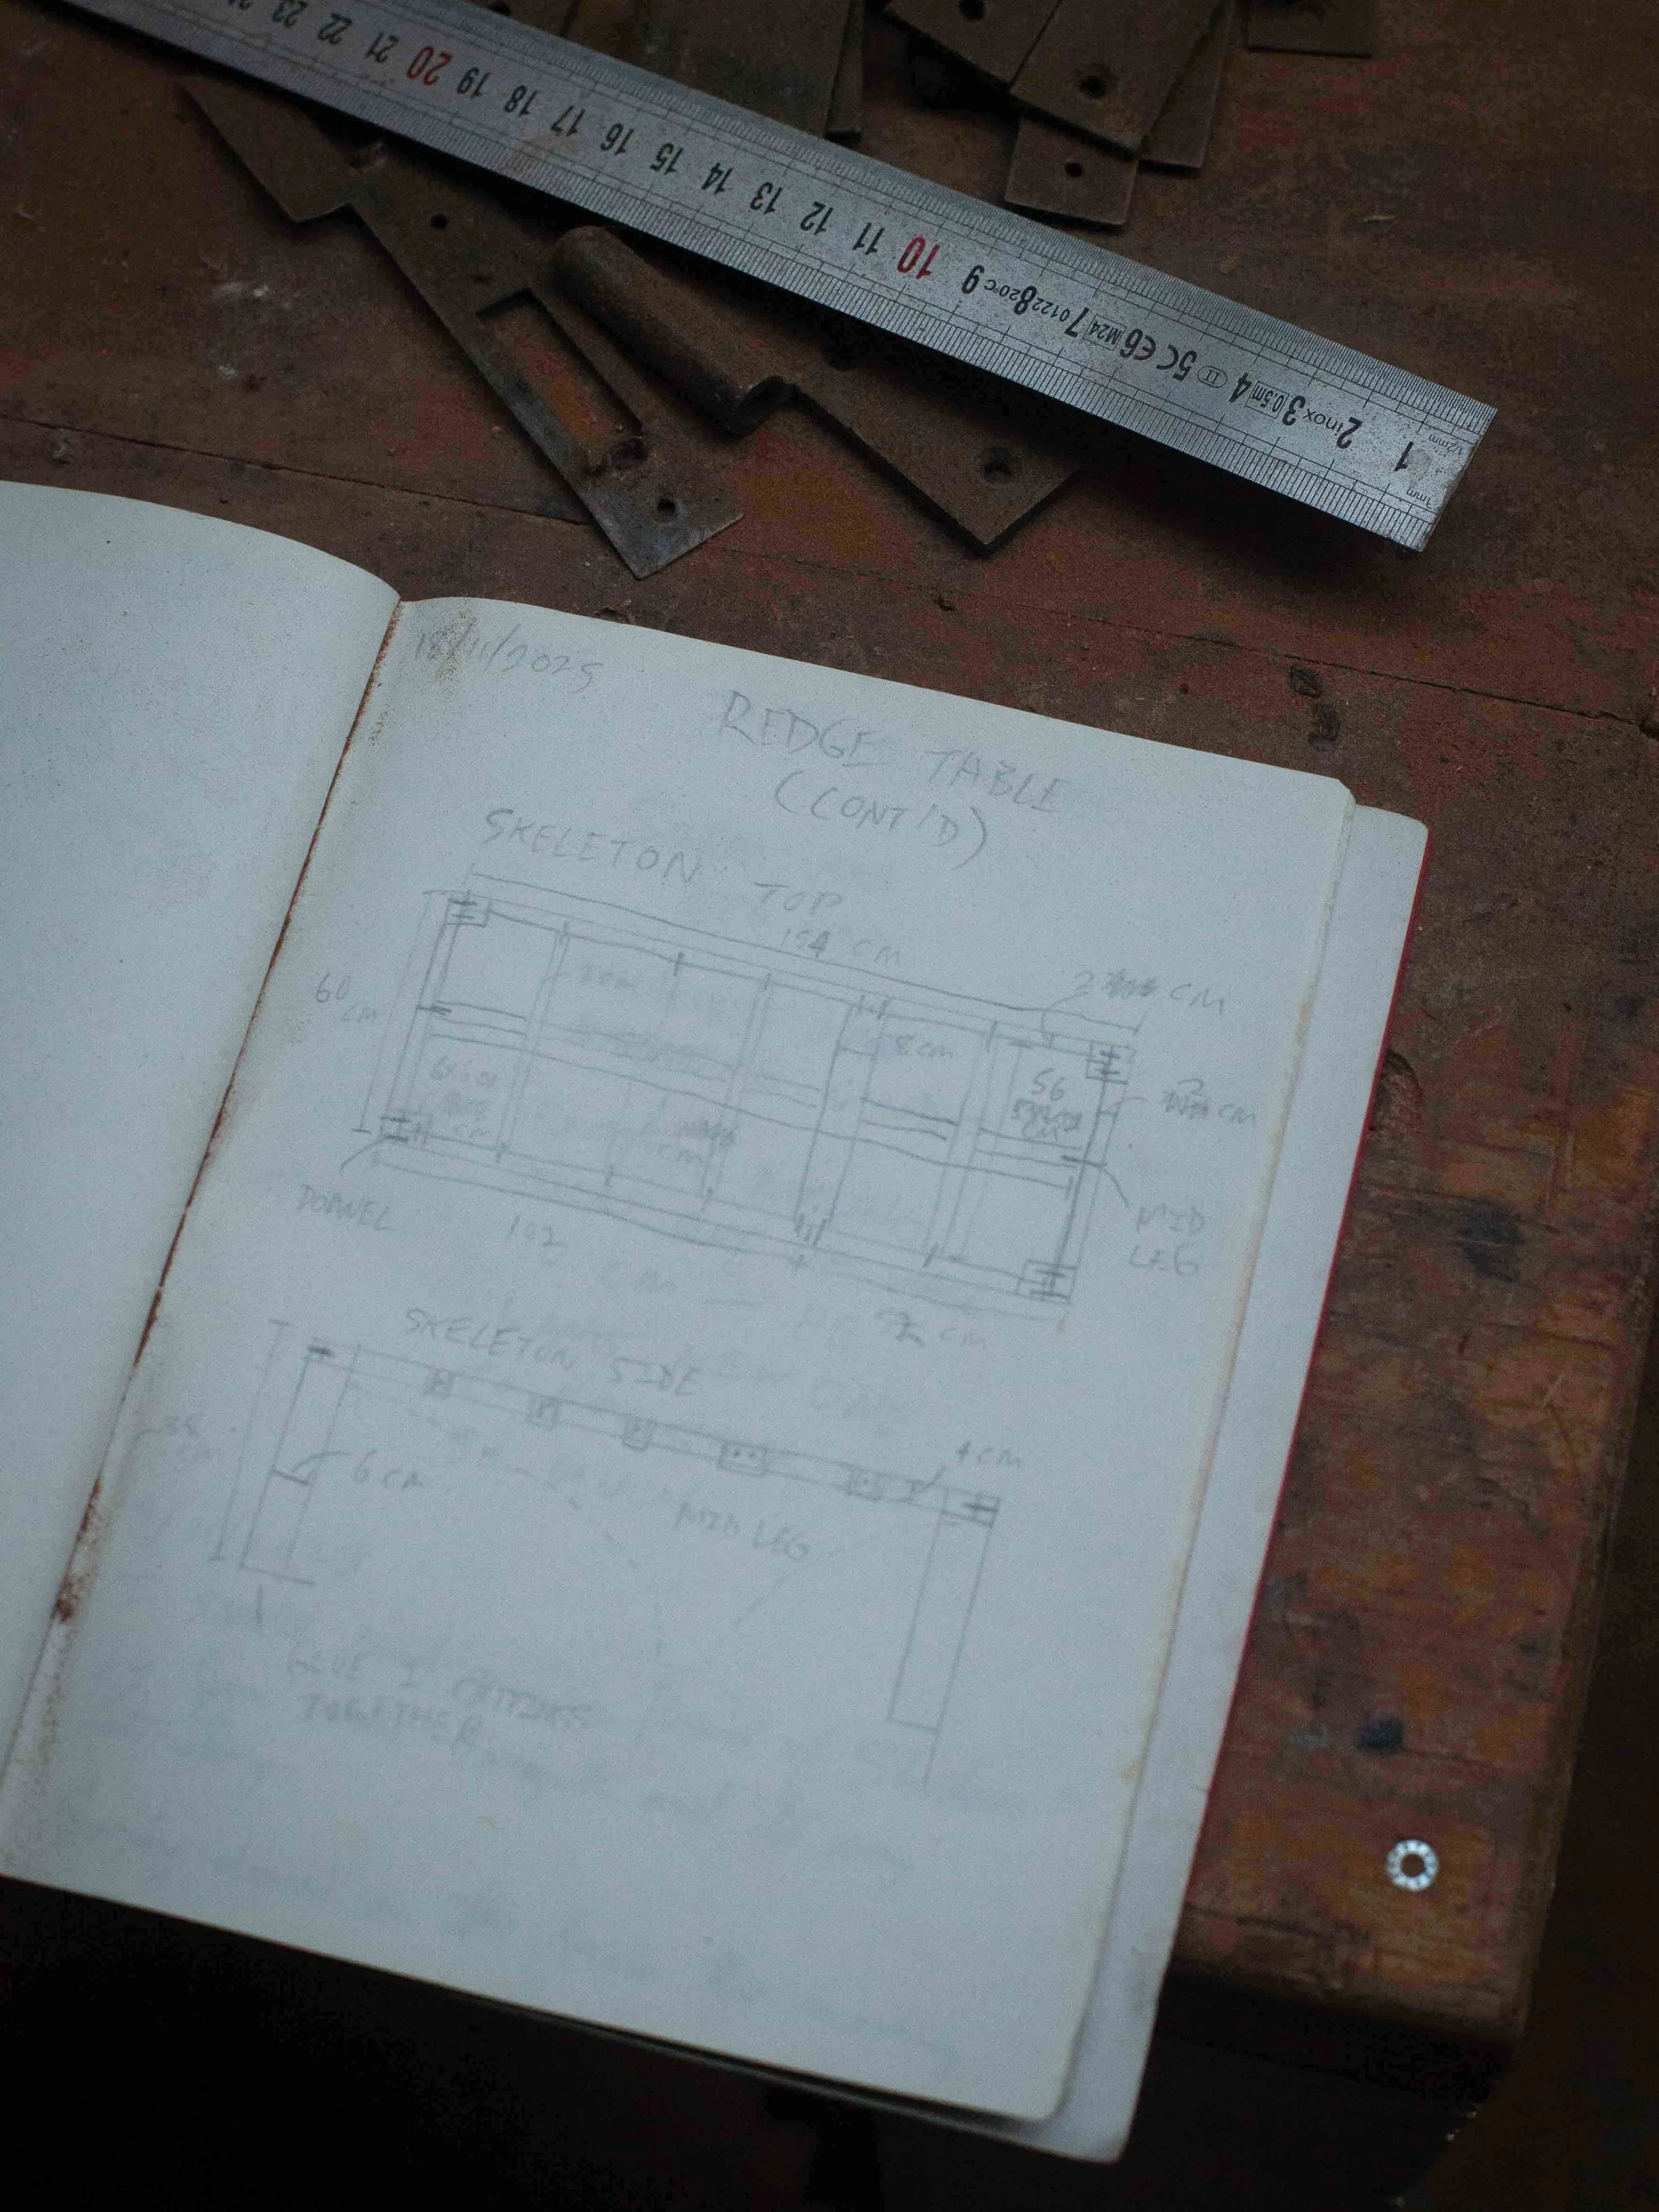 23 22 21 20 19 18 17 16 15 14 13 12 11 10 9 8 7 6 5 4 3 2 1
20°C 01228 M24 CE II 0.5m inox
1/2mm
1mm
18/11/2025
REDGE TABLE
(CONT'D)
SKELETON TOP
154 CM
2 CM
60
CM
8 CM
56
CM
CM
CM
CM
MID
LEG
DOWEL
102
52 CM
SKELETON SIDE
38
6 CM
4 CM
MID LEG
GLUE 2
TOGETHER